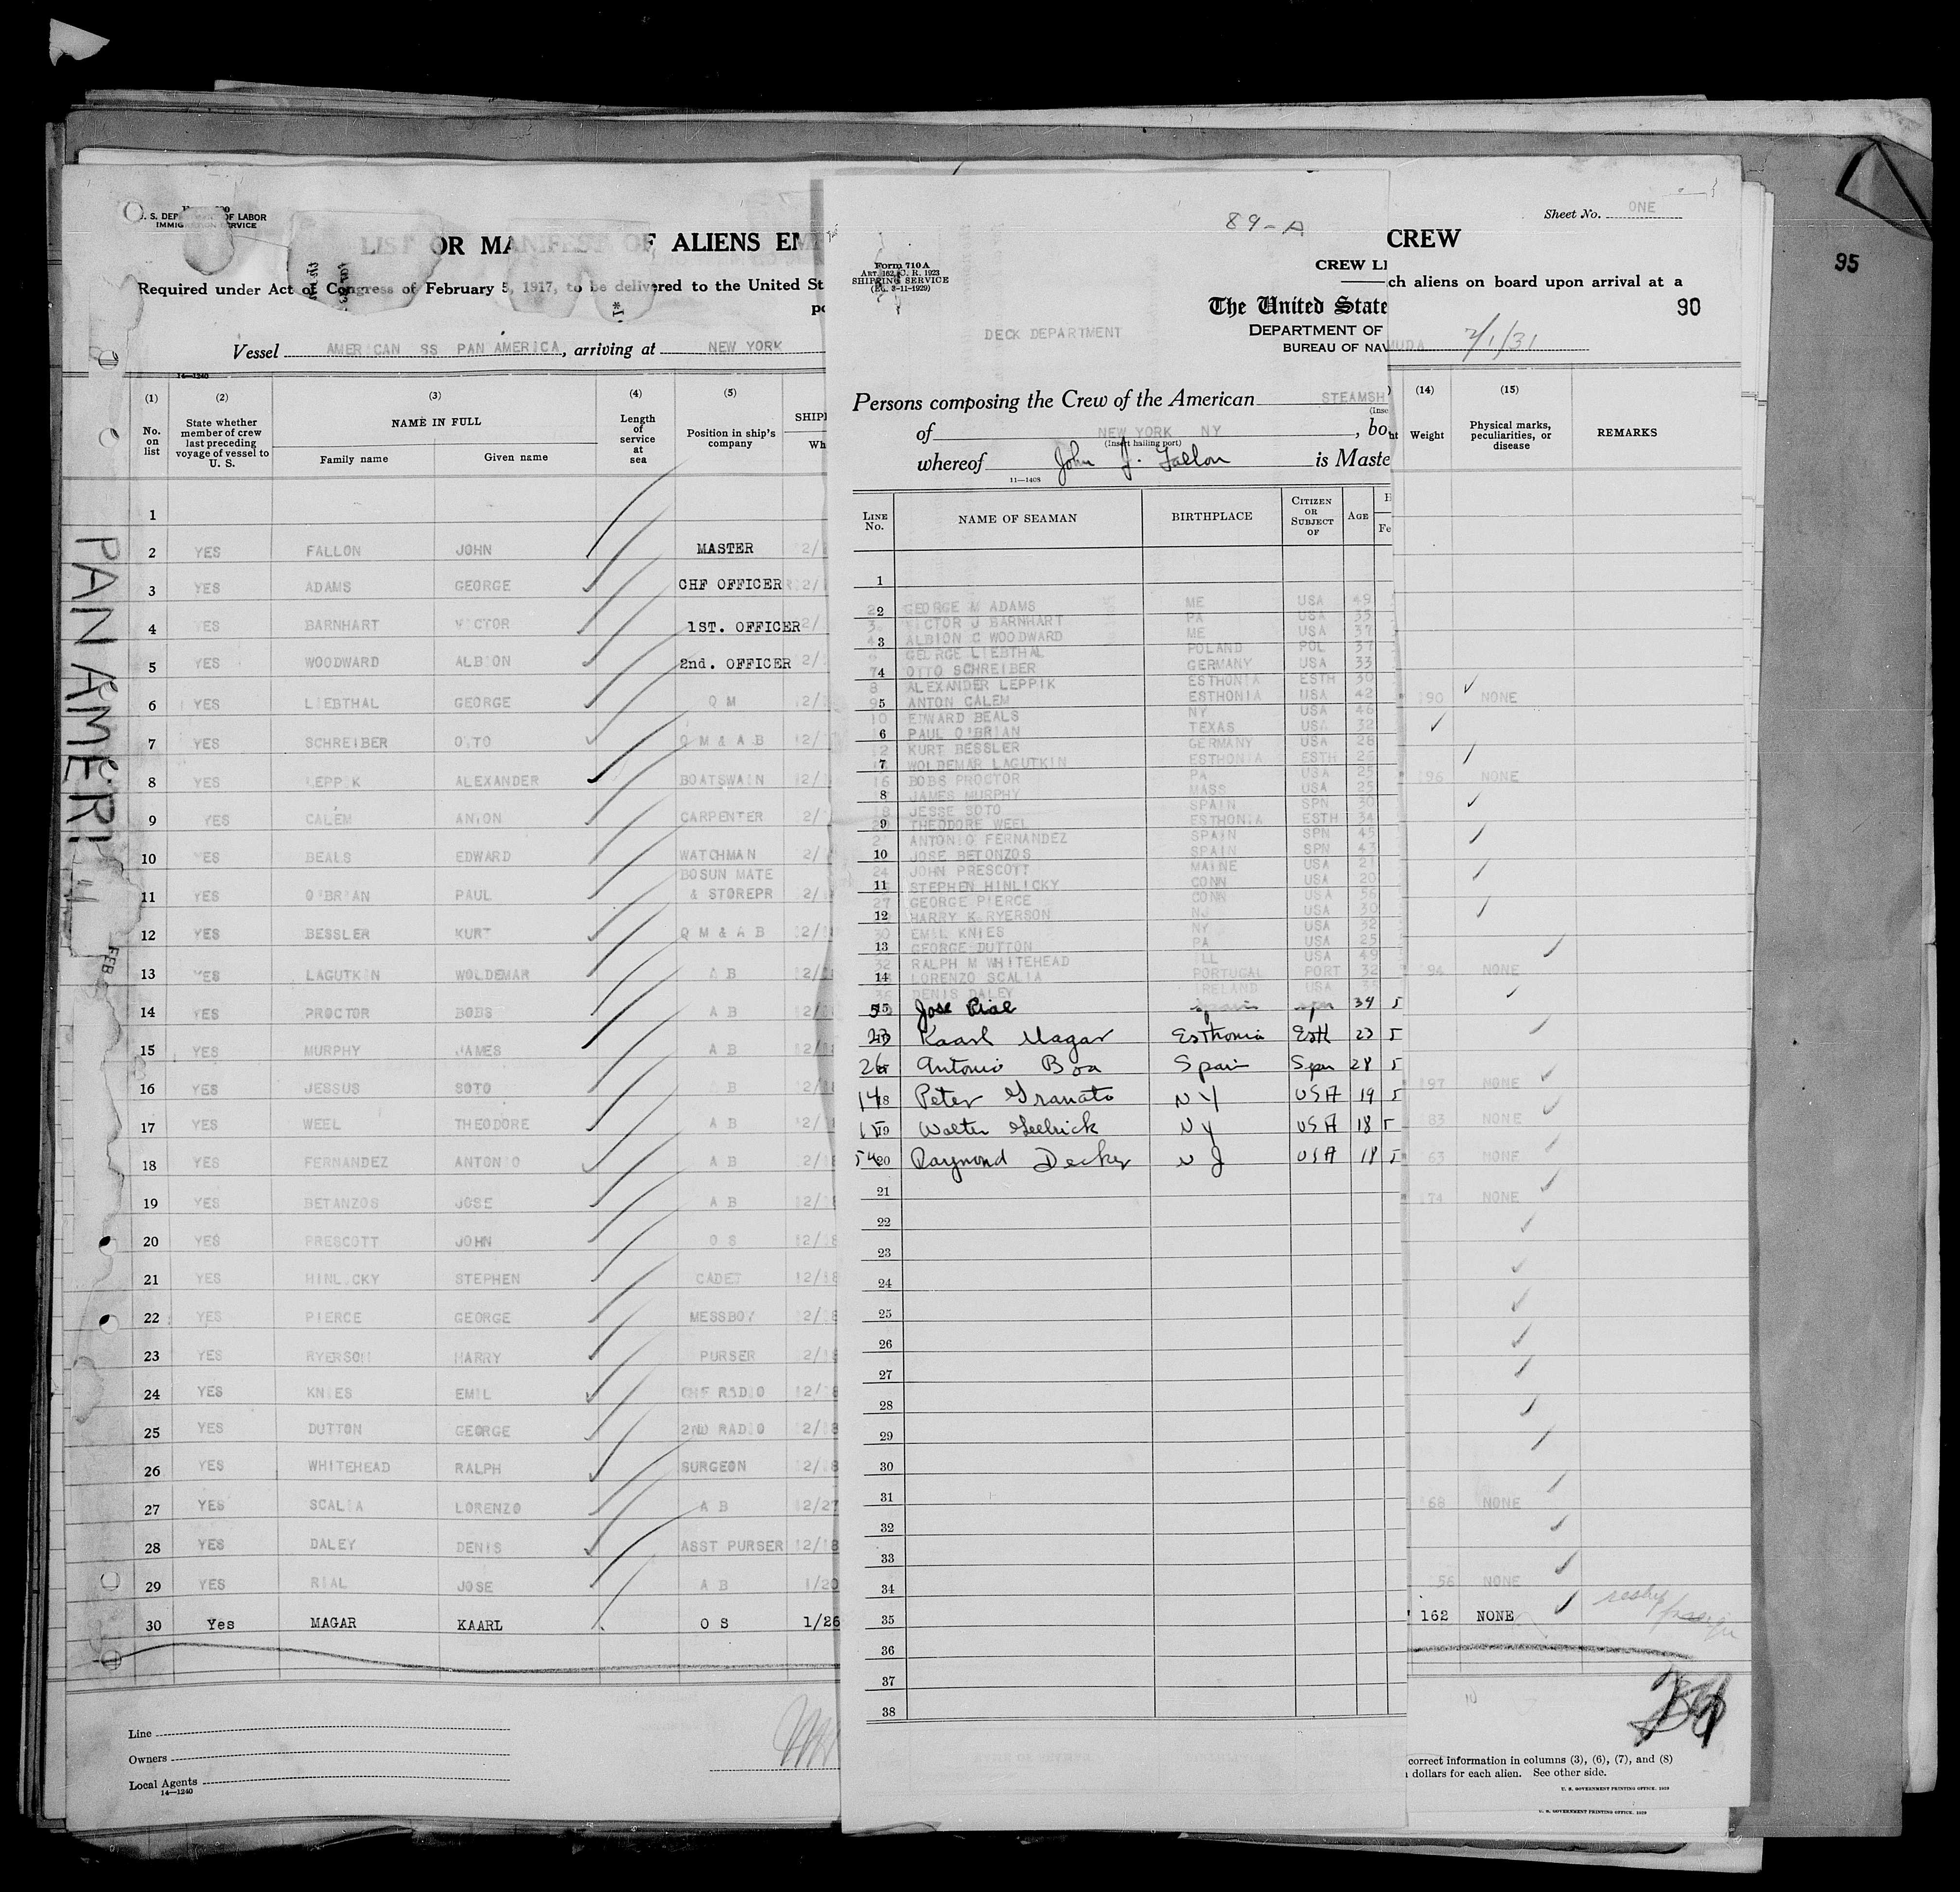 U. S. DEP OF LABOR
IMMIG SERVICE
LIST OR MANIFEST OF ALIENS EM
Required under Act of Congress of February 5, 1917, to be delivered to the United St
Vessel AMERICAN SS PAN AMERICA, arriving at NEW YORK
14—1240
(1) (2) (3) (4) (5)
No. on list
State whether member of crew last preceding voyage of vessel to U. S.
NAME IN FULL
Family name Given name
Length of service at sea
Position in ship's company
SHIP
Wh
1
2 YES FALLON JOHN MASTER
3 YES ADAMS GEORGE CHF OFFICER
4 YES BARNHART VICTOR 1ST. OFFICER
5 YES WOODWARD ALBION 2nd. OFFICER
6 YES LIEBTHAL GEORGE Q M
7 YES SCHREIBER OTTO Q M & A B
8 YES LEPPIK ALEXANDER BOATSWAIN
9 YES CALEM ANTON CARPENTER
10 YES BEALS EDWARD WATCHMAN
11 YES O'BRIAN PAUL BOSUN MATE & STOREPR
12 YES BESSLER KURT Q M & A B
13 YES LAGUTKIN WOLDEMAR A B
14 YES PROCTOR BOBS A B
15 YES MURPHY JAMES A B
16 YES JESSUS SOTO A B
17 YES WEEL THEODORE A B
18 YES FERNANDEZ ANTONIO A B
19 YES BETANZOS JOSE A B
20 YES PRESCOTT JOHN O S
21 YES HINLICKY STEPHEN CADET 12/18
22 YES PIERCE GEORGE MESSBOY 12/18
23 YES RYERSON HARRY PURSER 12/18
24 YES KNIES EMIL CHF RADIO 12/18
25 YES DUTTON GEORGE 2ND RADIO 12/18
26 YES WHITEHEAD RALPH SURGEON 12/18
27 YES SCALIA LORENZO A B 12/27
28 YES DALEY DENIS ASST PURSER 12/18
29 YES RIAL JOSE A B 1/20
30 Yes MAGAR KAARL O S 1/26
Line
Owners
Local Agents
14—1240
PAN AMERI
FEB
89-A
Form 710 A
ART. 162, C. R. 1923
SHIPPING SERVICE
(Ed. 3-11-1929)
DECK DEPARTMENT
CREW LI
The United State
DEPARTMENT OF
BUREAU OF NAV
Persons composing the Crew of the American STEAMSH
(Inse
of NEW YORK NY, bo
(Insert hailing port)
whereof John J. Fallon is Maste
11—1408
LINE No. NAME OF SEAMAN BIRTHPLACE CITIZEN OR SUBJECT OF AGE
Fe
1
2 GEORGE M ADAMS ME USA 49
VICTOR J BARNHART PA USA 35
3 ALBION C WOODWARD ME USA 37
GEORGE LIEBTHAL POLAND POL 37
4 OTTO SCHREIBER GERMANY USA 33
8 ALEXANDER LEPPIK ESTHONIA ESTH 30
5 ANTON CALEM ESTHONIA USA 42
10 EDWARD BEALS NY USA 46
6 PAUL O'BRIAN TEXAS USA 32
KURT BESSLER GERMANY USA 28
7 WOLDEMAR LAGUTKIN ESTHONIA ESTH
BOBS PROCTOR PA USA 25
8 JAMES MURPHY MASS USA 25
JESSE SOTO SPAIN SPN 30
9 THEODORE WEEL ESTHONIA ESTH 34
ANTONIO FERNANDEZ SPAIN SPN 45
10 JOSE BETONZOS SPAIN SPN 43
24 JOHN PRESCOTT MAINE USA 21
11 STEPHEN HINLICKY CONN USA 20
27 GEORGE PIERCE CONN USA 56
12 HARRY K RYERSON NJ USA 30
30 EMIL KNIES NY USA 32
13 GEORGE DUTTON PA USA 25
32 RALPH M WHITEHEAD ILL USA 49
14 LORENZO SCALIA PORTUGAL PORT 32
DENIS DALEY IRELAND USA 35
15 Jose Rial spain spn 34 5
Kaarl Magar Esthonia Esth 23 5
26 Antonio Boa Spain Span 28 5
14 18 Peter Granato N Y USA 19 5
15 19 Walter N Y USA 18 5
54 20 Raymond Decker N J USA 18 5
21
22
23
24
25
26
27
28
29
30
31
32
33
34
35
36
37
38
Sheet No. ONE
CREW
ch aliens on board upon arrival at a
90
MUDA 2/1/31
(14) (15)
ht Weight
Physical marks, peculiarities, or disease
REMARKS
190 NONE
196 NONE
194 NONE
197 NONE
83 NONE
63 NONE
174 NONE
168 NONE
156 NONE
162 NONE
correct information in columns (3), (6), (7), and (8)
dollars for each alien. See other side.
U. S. GOVERNMENT PRINTING OFFICE. 1929
U. S. GOVERNMENT PRINTING OFFICE. 1929
95